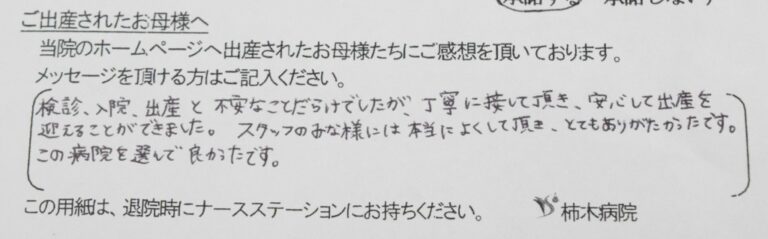 承諾する 承諾しない
ご出産されたお母様へ
当院のホームページへ出産されたお母様たちにご感想を頂いております。
メッセージを頂ける方はご記入ください。
検診、入院、出産と不安なことだらけでしたが、丁寧に接して頂き、安心して出産を
迎えることができました。スタッフのみな様には本当によくして頂き、とてもありがたかったです。
この病院を選んで良かったです。
この用紙は、退院時にナースステーションにお持ちください。 柿木病院